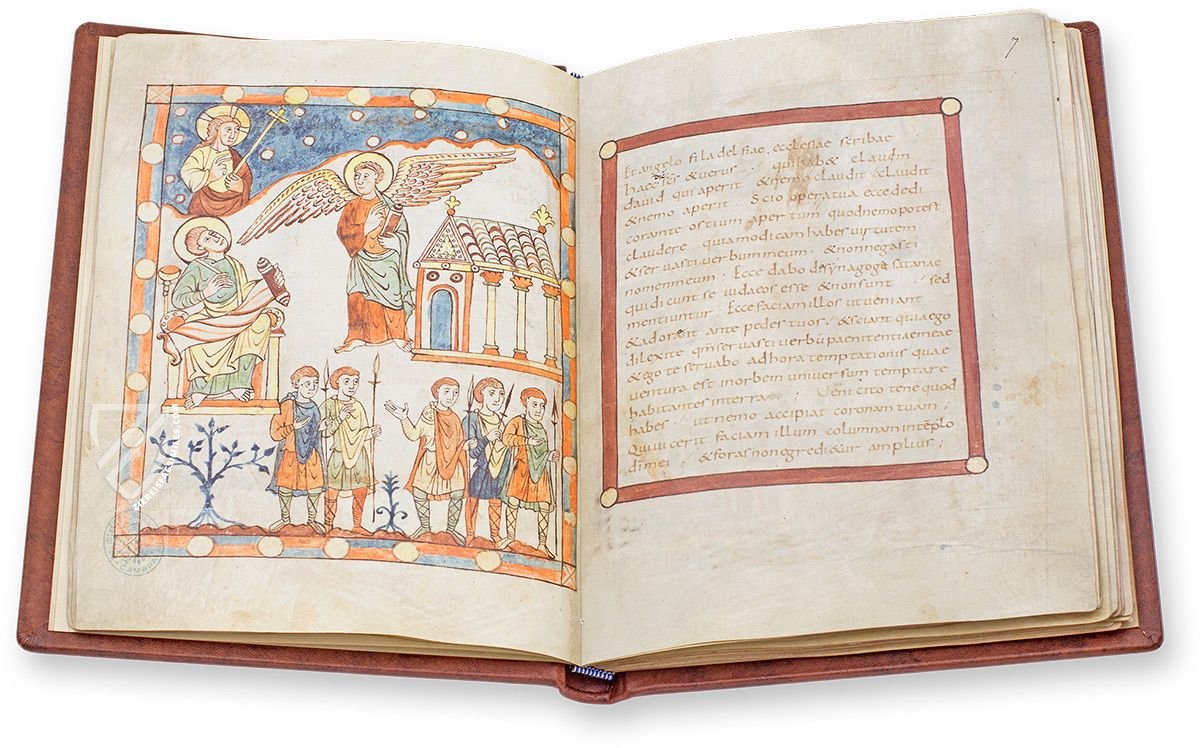 7
Et angelo filadelfiae, ecclesiae scribae
haec scs & verus / qui hab& clauem
dauid qui aperit & nemo claudit & claudit
& nemo aperit / Scio opera tua ecce dedi
corante ostium apertum quod nemo potest
claudere quia modicam habes virtutem
& servasti verbum meum / & non negasti
nomen meum / Ecce dabo de synagoge satanae
qui dicunt se iudaeos esse & non sunt / sed
mentiuntur / Ecce faciam illos ut veniant
& adorent ante pedes tuos / & sciant quia ego
dilexi te qm servasti verbu paenitentiae meae
& ego te servabo ad hora temptationis quae
ventura est in orbem universum temptare
habitantes in terra / Veni cito tene quod
habes / ut nemo accipiat coronam tuam /
Qui vicerit faciam illum columnam in teplo
di mei / & foras non egredi&ur amplius ;